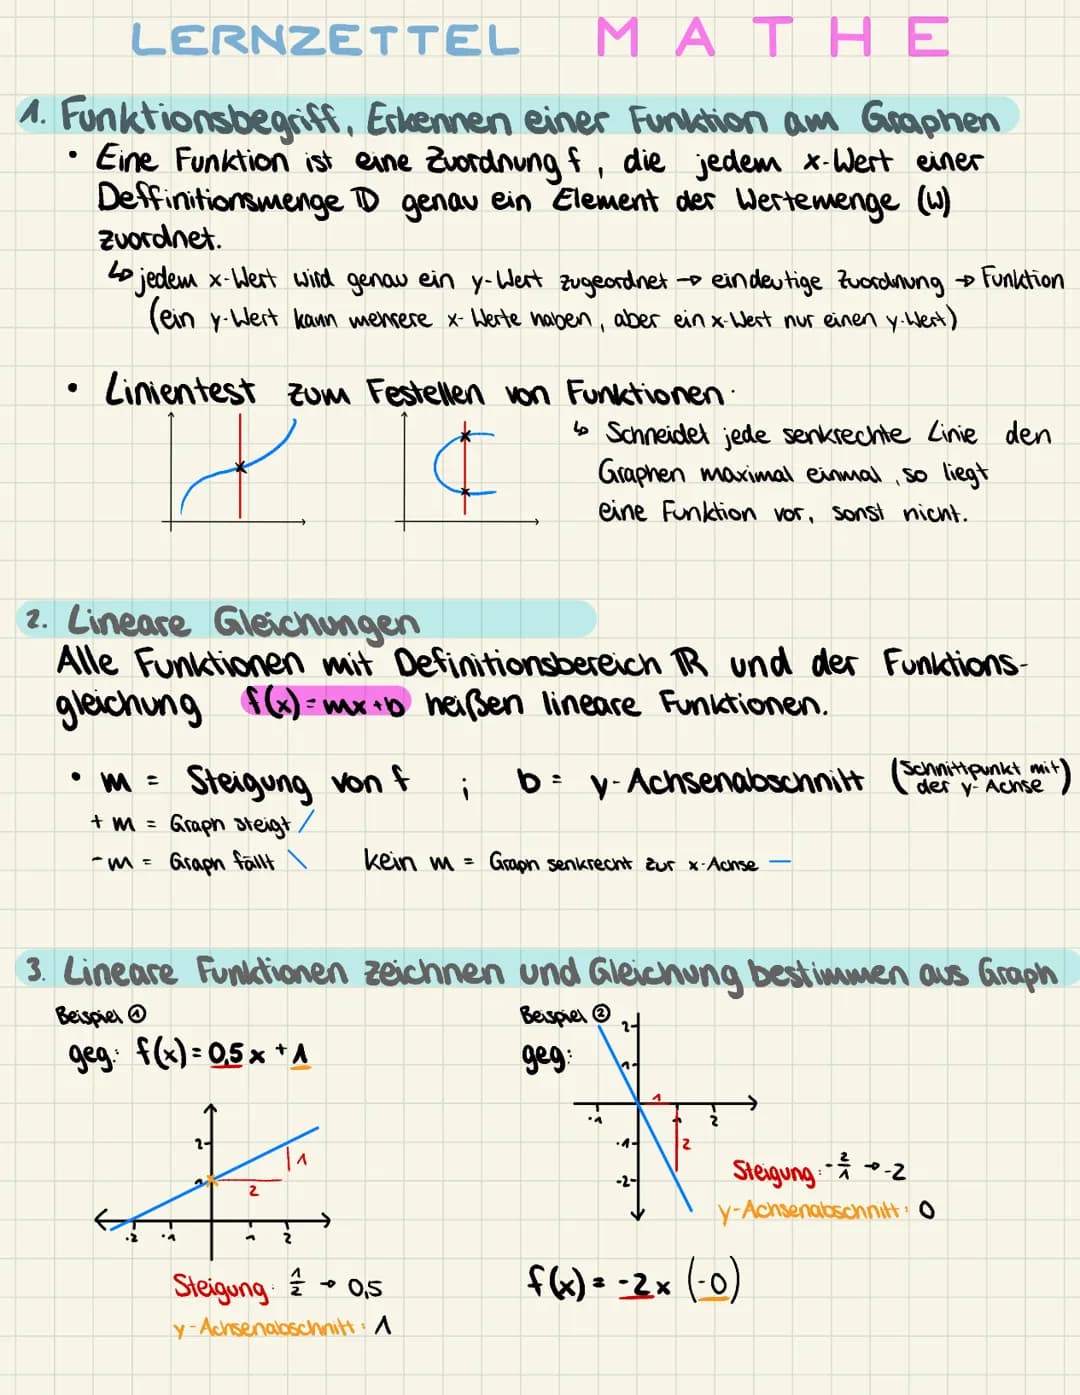 LERNZETTEL MATHE
1. Funktionsbegriff, Erkennen einer Funktion am Graphen
• Eine Funktion ist eine Zuordnung f, die jedem x-Wert einer
Deffinitionsmenge D genau ein Element der Wertemenge (W)
zuordnet.
↳ jedem x-Wert wird genau ein y-Wert zugeordnet → eindeutige Zuordnung → Funktion
(ein y-Wert kann mehrere x-Werte haben, aber ein x-Wert nur einen y-Wert)
• Linientest zum Festellen von Funktionen.
↳ Schneidet jede senkrechte Linie den
Graphen maximal einmal, so liegt
eine Funktion vor, sonst nicht.
2. Lineare Gleichungen
Alle Funktionen mit Definitionsbereich ℝ und der Funktions-
gleichung f(x)=mx+b heißen lineare Funktionen.
• m = Steigung von f ; b = y-Achsenabschnitt (Schnittpunkt mit
der y-Achse)
+ m = Graph steigt /
- m = Graph fällt \ kein m = Graph senkrecht zur x-Achse —
3. Lineare Funktionen zeichnen und Gleichung bestimmen aus Graph
Beispiel ①
geg: f(x)=0,5x+1
2
1
1
2
-2 -1 1 2
Steigung: 1/2 → 0,5
y-Achsenabschnitt: 1
Beispiel ②
geg:
2
1
1
-1 1 2
-1
2
-2
Steigung: -2/1 → -2
y-Achsenabschnitt: 0
f(x) = -2x (-0)